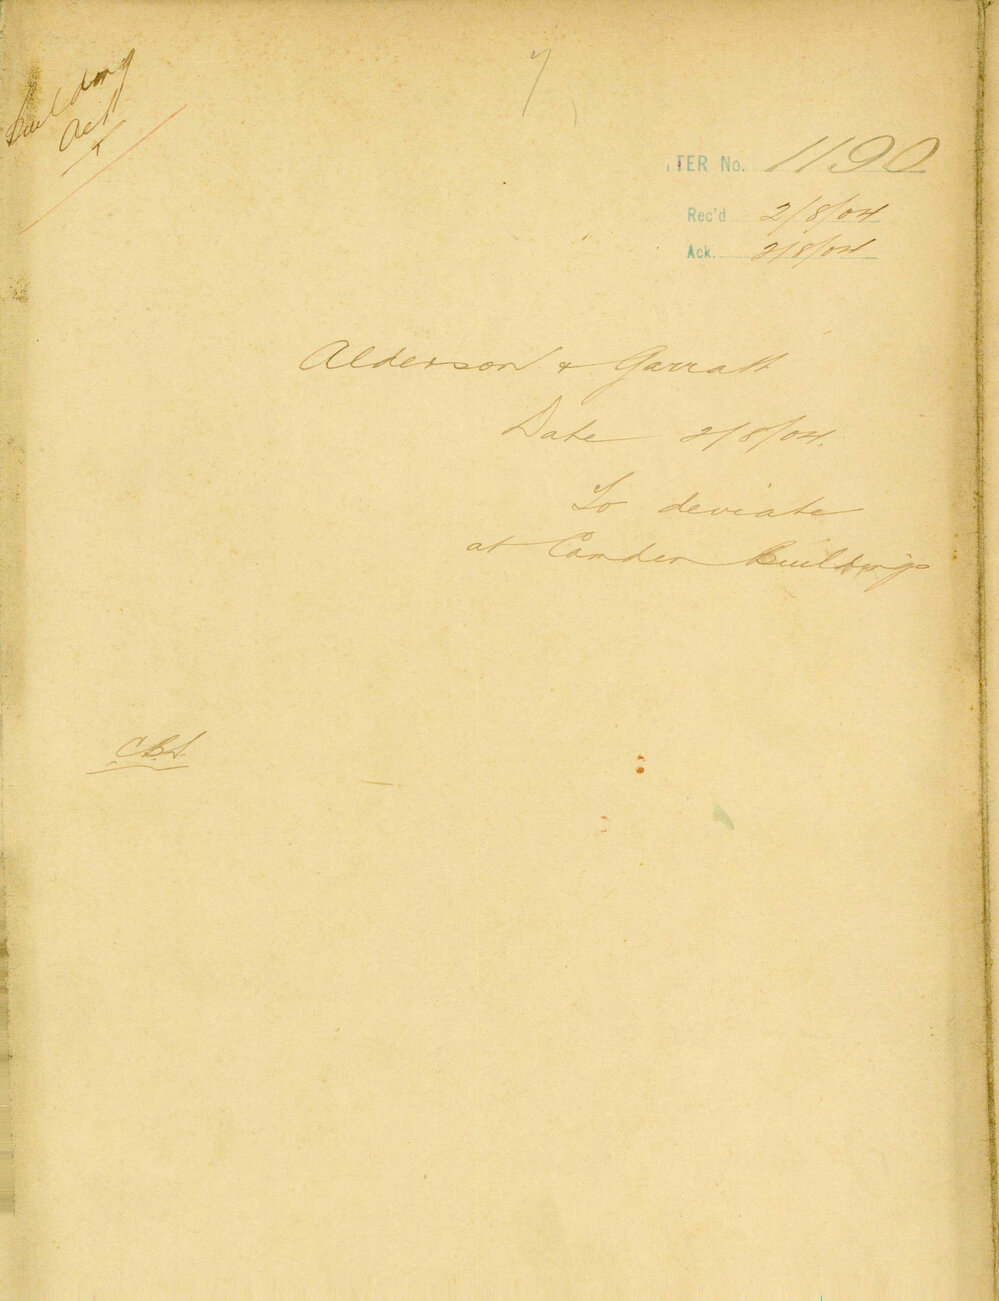 Building
Act
7
TTER No. 1190
Rec'd 2/8/04
Ack. 2/8/04
Alderson & Garratt
Date 2/8/04.
To deviate
at Camden Buildings